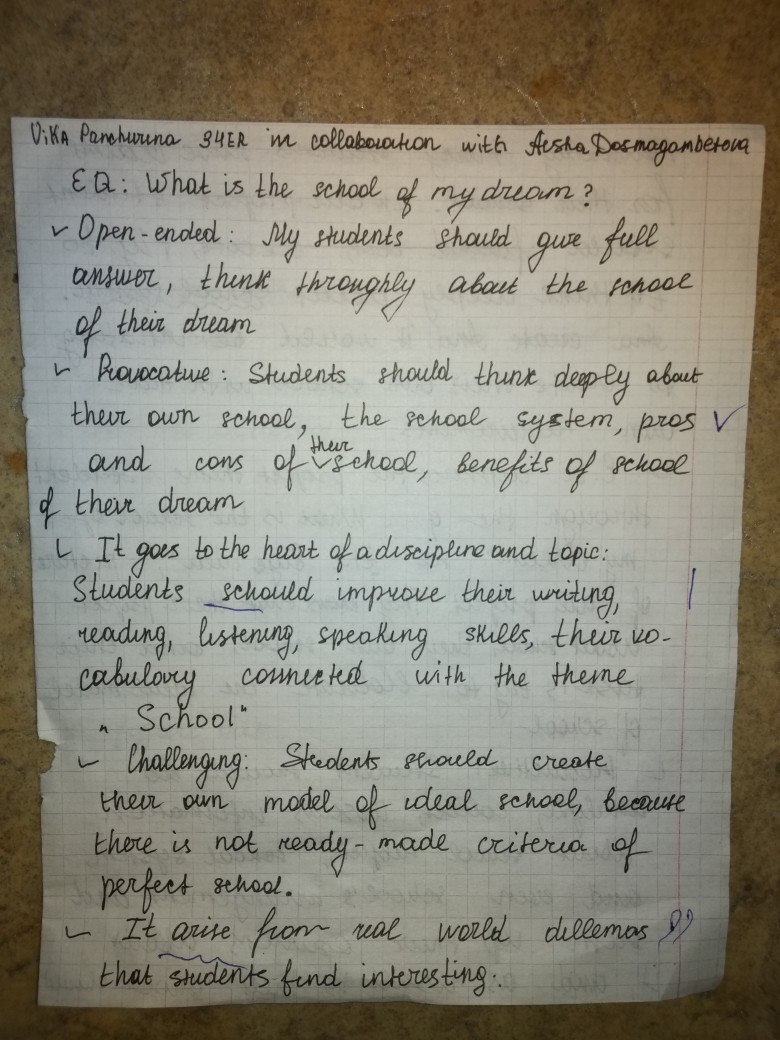 Vika Panchurina 34ER in collaboration with Aisha Dosmagambetova
EQ: What is the school of my dream?
✓ Open-ended: My students should give full
answer, think throughly about the school
of their dream
✓ Provocative: Students should think deeply about
their own school, the school system, pros ✓
and cons of their school, benefits of school
of their dream
✓ It goes to the heart of a discipline and topic:
Students schould improve their writing,
reading, listening, speaking skills, their vo-
cabulary connected with the theme
„School“
✓ Challenging: Students should create
their own model of ideal school, because
there is not ready-made criteria of
perfect school.
✓ It arise from real world dillemas
that students find interesting.